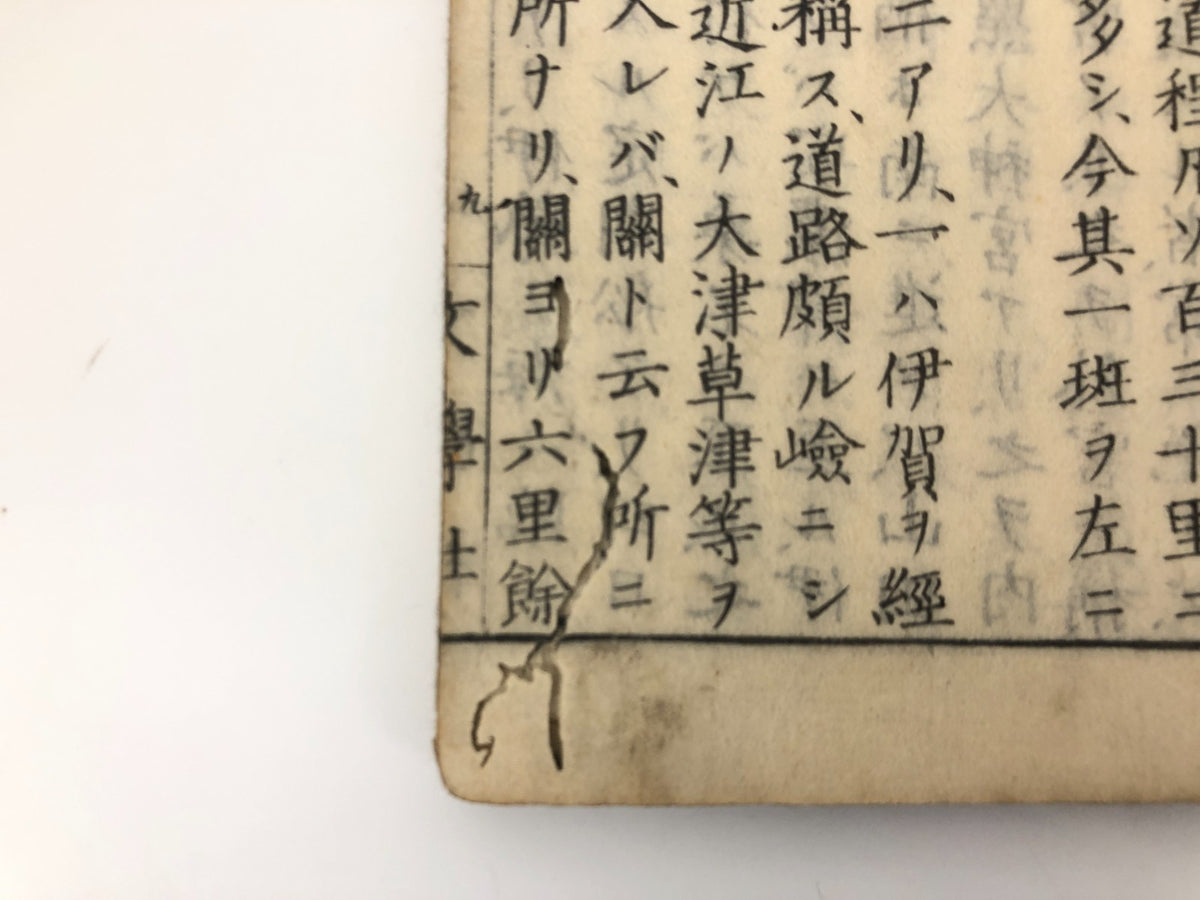 道程凡ソ百三十里ニ
多シ、今其一斑ヲ左ニ
ニアリ、一ハ伊賀ヲ經
稱ス、道路頗ル嶮ニシ
近江ノ大津、草津等ヲ
入レバ、關ト云フ所ニ
所ナリ、關ヨリ六里餘
九 文學社